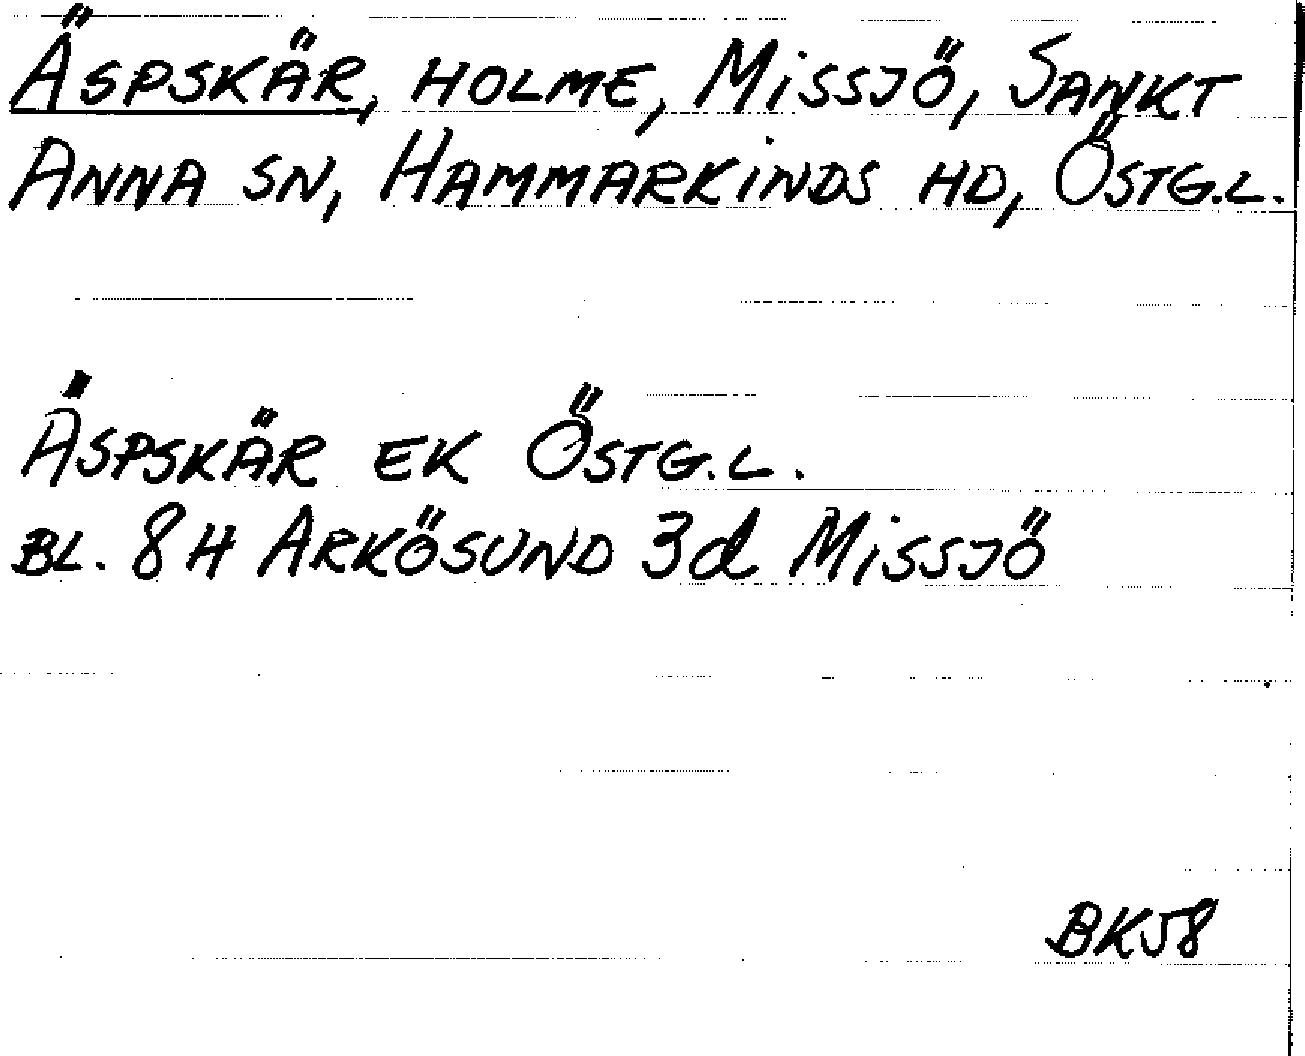 Äspskär, holme, Missjö, Sankt
Anna sn, Hammarkinds hd, Östg.l.
Äspskär ek Östg.l.
bl. 8H Arkösund 3d Missjö
BK58